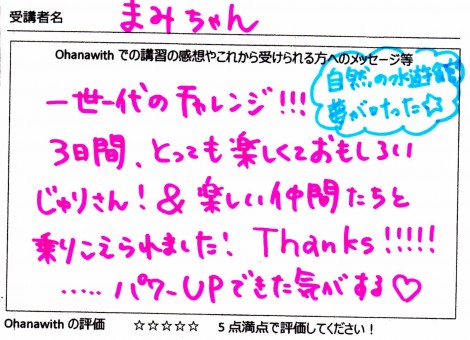 受講者名 まみちゃん
Ohanawith での講習の感想やこれから受けられる方へのメッセージ等
自然の水遊館
夢が叶った☆
一世一代のチャレンジ!!!
3日間、とっても楽しくておもしろい
じゅりさん!&楽しい仲間たちと
乗りこえられました! Thanks!!!!!
.....パワーUPできた気がする♡
Ohanawith の評価 ☆☆☆☆☆ 5点満点で評価してください!